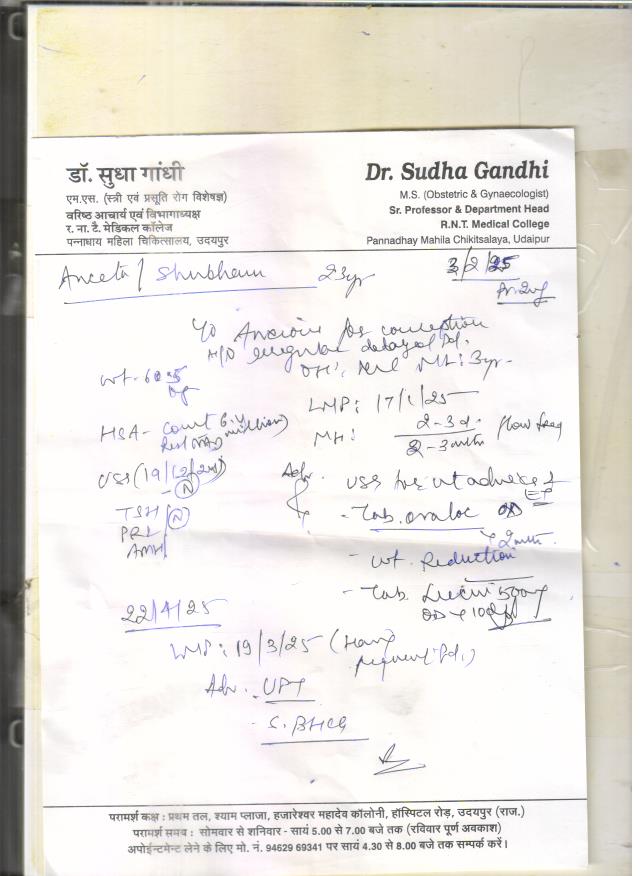 डॉ. सुधा गांधी
एम.एस. (स्त्री एवं प्रसूति रोग विशेषज्ञ)
वरिष्ठ आचार्य एवं विभागाध्यक्ष
र. ना. टै. मेडिकल कॉलेज
पन्नाधाय महिला चिकित्सालय, उदयपुर
Dr. Sudha Gandhi
M.S. (Obstetric & Gynaecologist)
Sr. Professor & Department Head
R.N.T. Medical College
Pannadhay Mahila Chikitsalaya, Udaipur
Shubham 23yr 3/2/25
Anxious for conception
H/O irregular delayed Pd.
ML: 3yr.
Wt -
LMP: 17/1/25
HSA- Count
million)
MH: 2-3d. / 2-3mth flow
USS (19/12/24)
- (N)
Adv.
TSH (N)
PRL
AMH
- Tab. ovaloc
x 2mth.
- Wt. Reduction
- Tab. 500mg
OD x 10d
22/4/25
LMP: 19/3/25 (Having
Pd.)
Adv. UPT
- S. BHCG
परामर्श कक्ष : प्रथम तल, श्याम प्लाजा, हजारेश्वर महादेव कॉलोनी, हॉस्पिटल रोड़, उदयपुर (राज.)
परामर्श समय : सोमवार से शनिवार - सायं 5.00 से 7.00 बजे तक (रविवार पूर्ण अवकाश)
अपोईन्टमेन्ट लेने के लिए मो. नं. 94629 69341 पर सायं 4.30 से 8.00 बजे तक सम्पर्क करें।